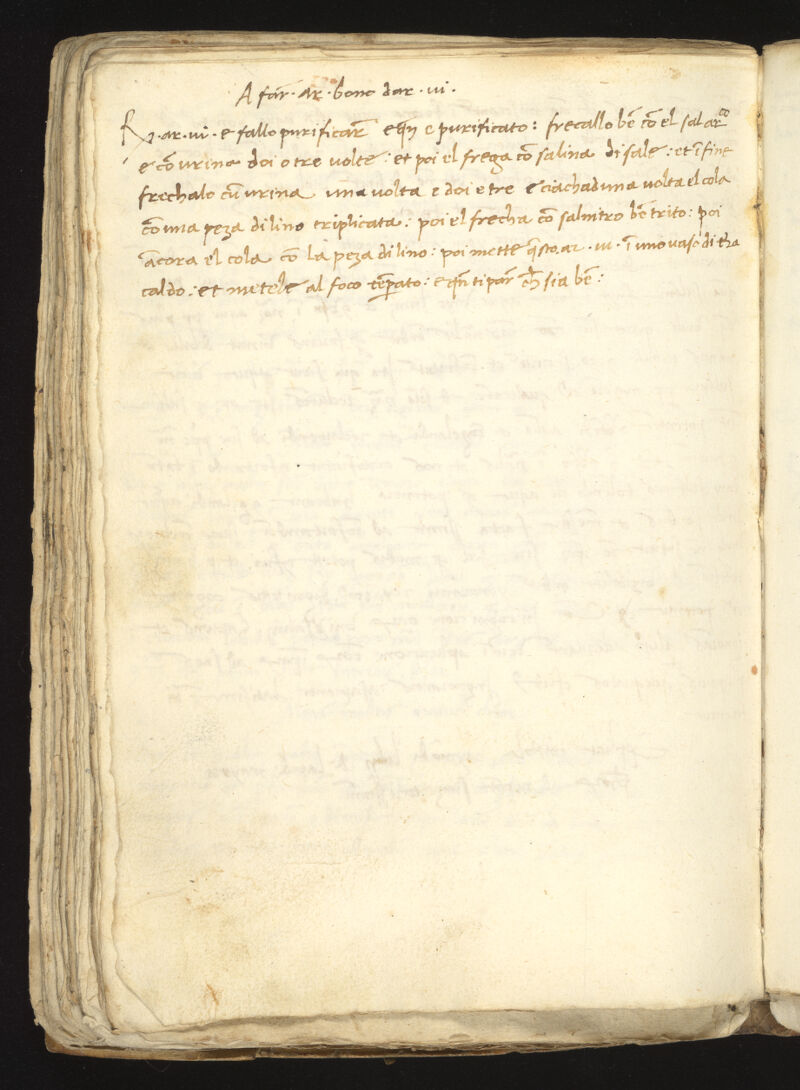 A far̄ · ar · bono dar · vi ·
℞ · ar · vi · e fallo purificar̄ e qñ e purificato : frecallo bē cō el sal ar̄co
e cō urina doi o tre volte : et poi el frega cō salina di sale : et ī fine
frechalo cū urina una volta e doi e tre e ciachaduna volta el cola
cō una peza di lino triplicata : poi el frecha cō salnitro bē trito : poi
ācora el cola cō la peza di lino : poi mette q̄sto ar · vi · ī uno vaso di t̄ra
caldo : et metele al foco tēperato : e qñ ti par̄ ch̄ sia bē :